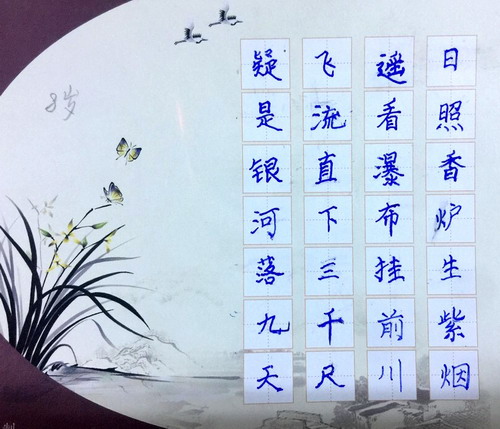 日照香炉生紫烟
遥看瀑布挂前川
飞流直下三千尺
疑是银河落九天
8岁